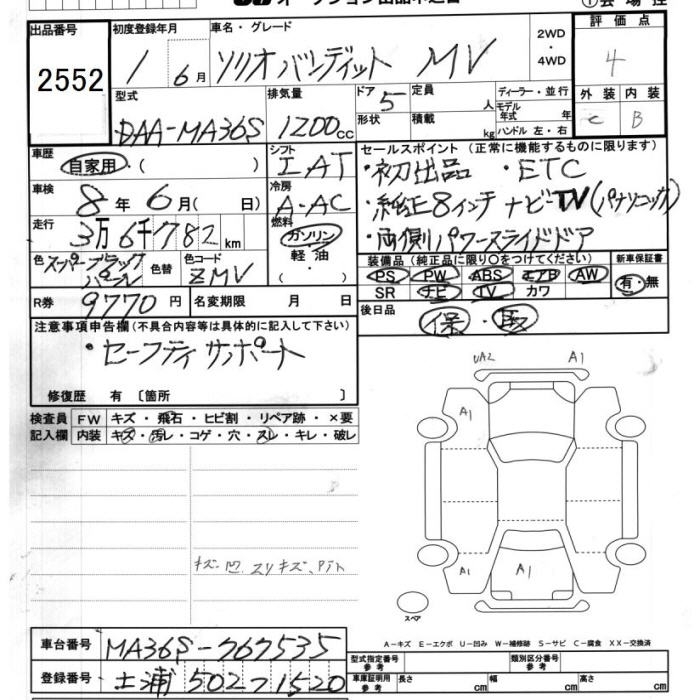 出品番号 初度登録年月 車名・グレード 2WD・4WD 評価点
2552 1 6月 ソリオバンディット MV 4
型式 排気量 ドア 5 定員 人 ディーラー・並行 外装 内装
DAA-MA36S 1200cc 形状 積載 kg モデル年式 年 ハンドル 左・右 C B
車歴 シフト セールスポイント (正常に機能するものに限ります)
自家用・( ) IAT ・初出品 ・ETC
車検 冷房 ・純正8インチナビーTV(パナソニック)
8年 6月( 日) A-AC
走行 燃料 ・両側パワースライドドア
3万6千782km ガソリン・軽油・( )
色 スーパーブラックパール 色替 色コード ZMV 装備品 (純正品に限り○をつけてください) 新車保証書
PS PW ABS エアB AW 有・無
SR ナビ TV カワ
R券 9770円 名変期限 月 日 後日品
保・取
注意事項申告欄 (不具合内容等は具体的に記入して下さい)
・セーフティサポート
修復歴 有〔箇所 〕
UA2 A1
A1
検査員記入欄 FW キズ・飛石・ヒビ割・リペア跡・×要
内装 キズ・汚レ・コゲ・穴・スレ・キレ・破レ
キズ、凹、スリキズ、
A1 A1
スペア
A-キズ E-エクボ U-凹み W-補修跡 S-サビ C-腐食 XX-交換済
車台番号 MA36S-767535
型式指定番号 参考 類別区分番号 参考
登録番号 土浦 502 1520
車庫証明用 参考 長さ cm 幅 cm 高さ cm